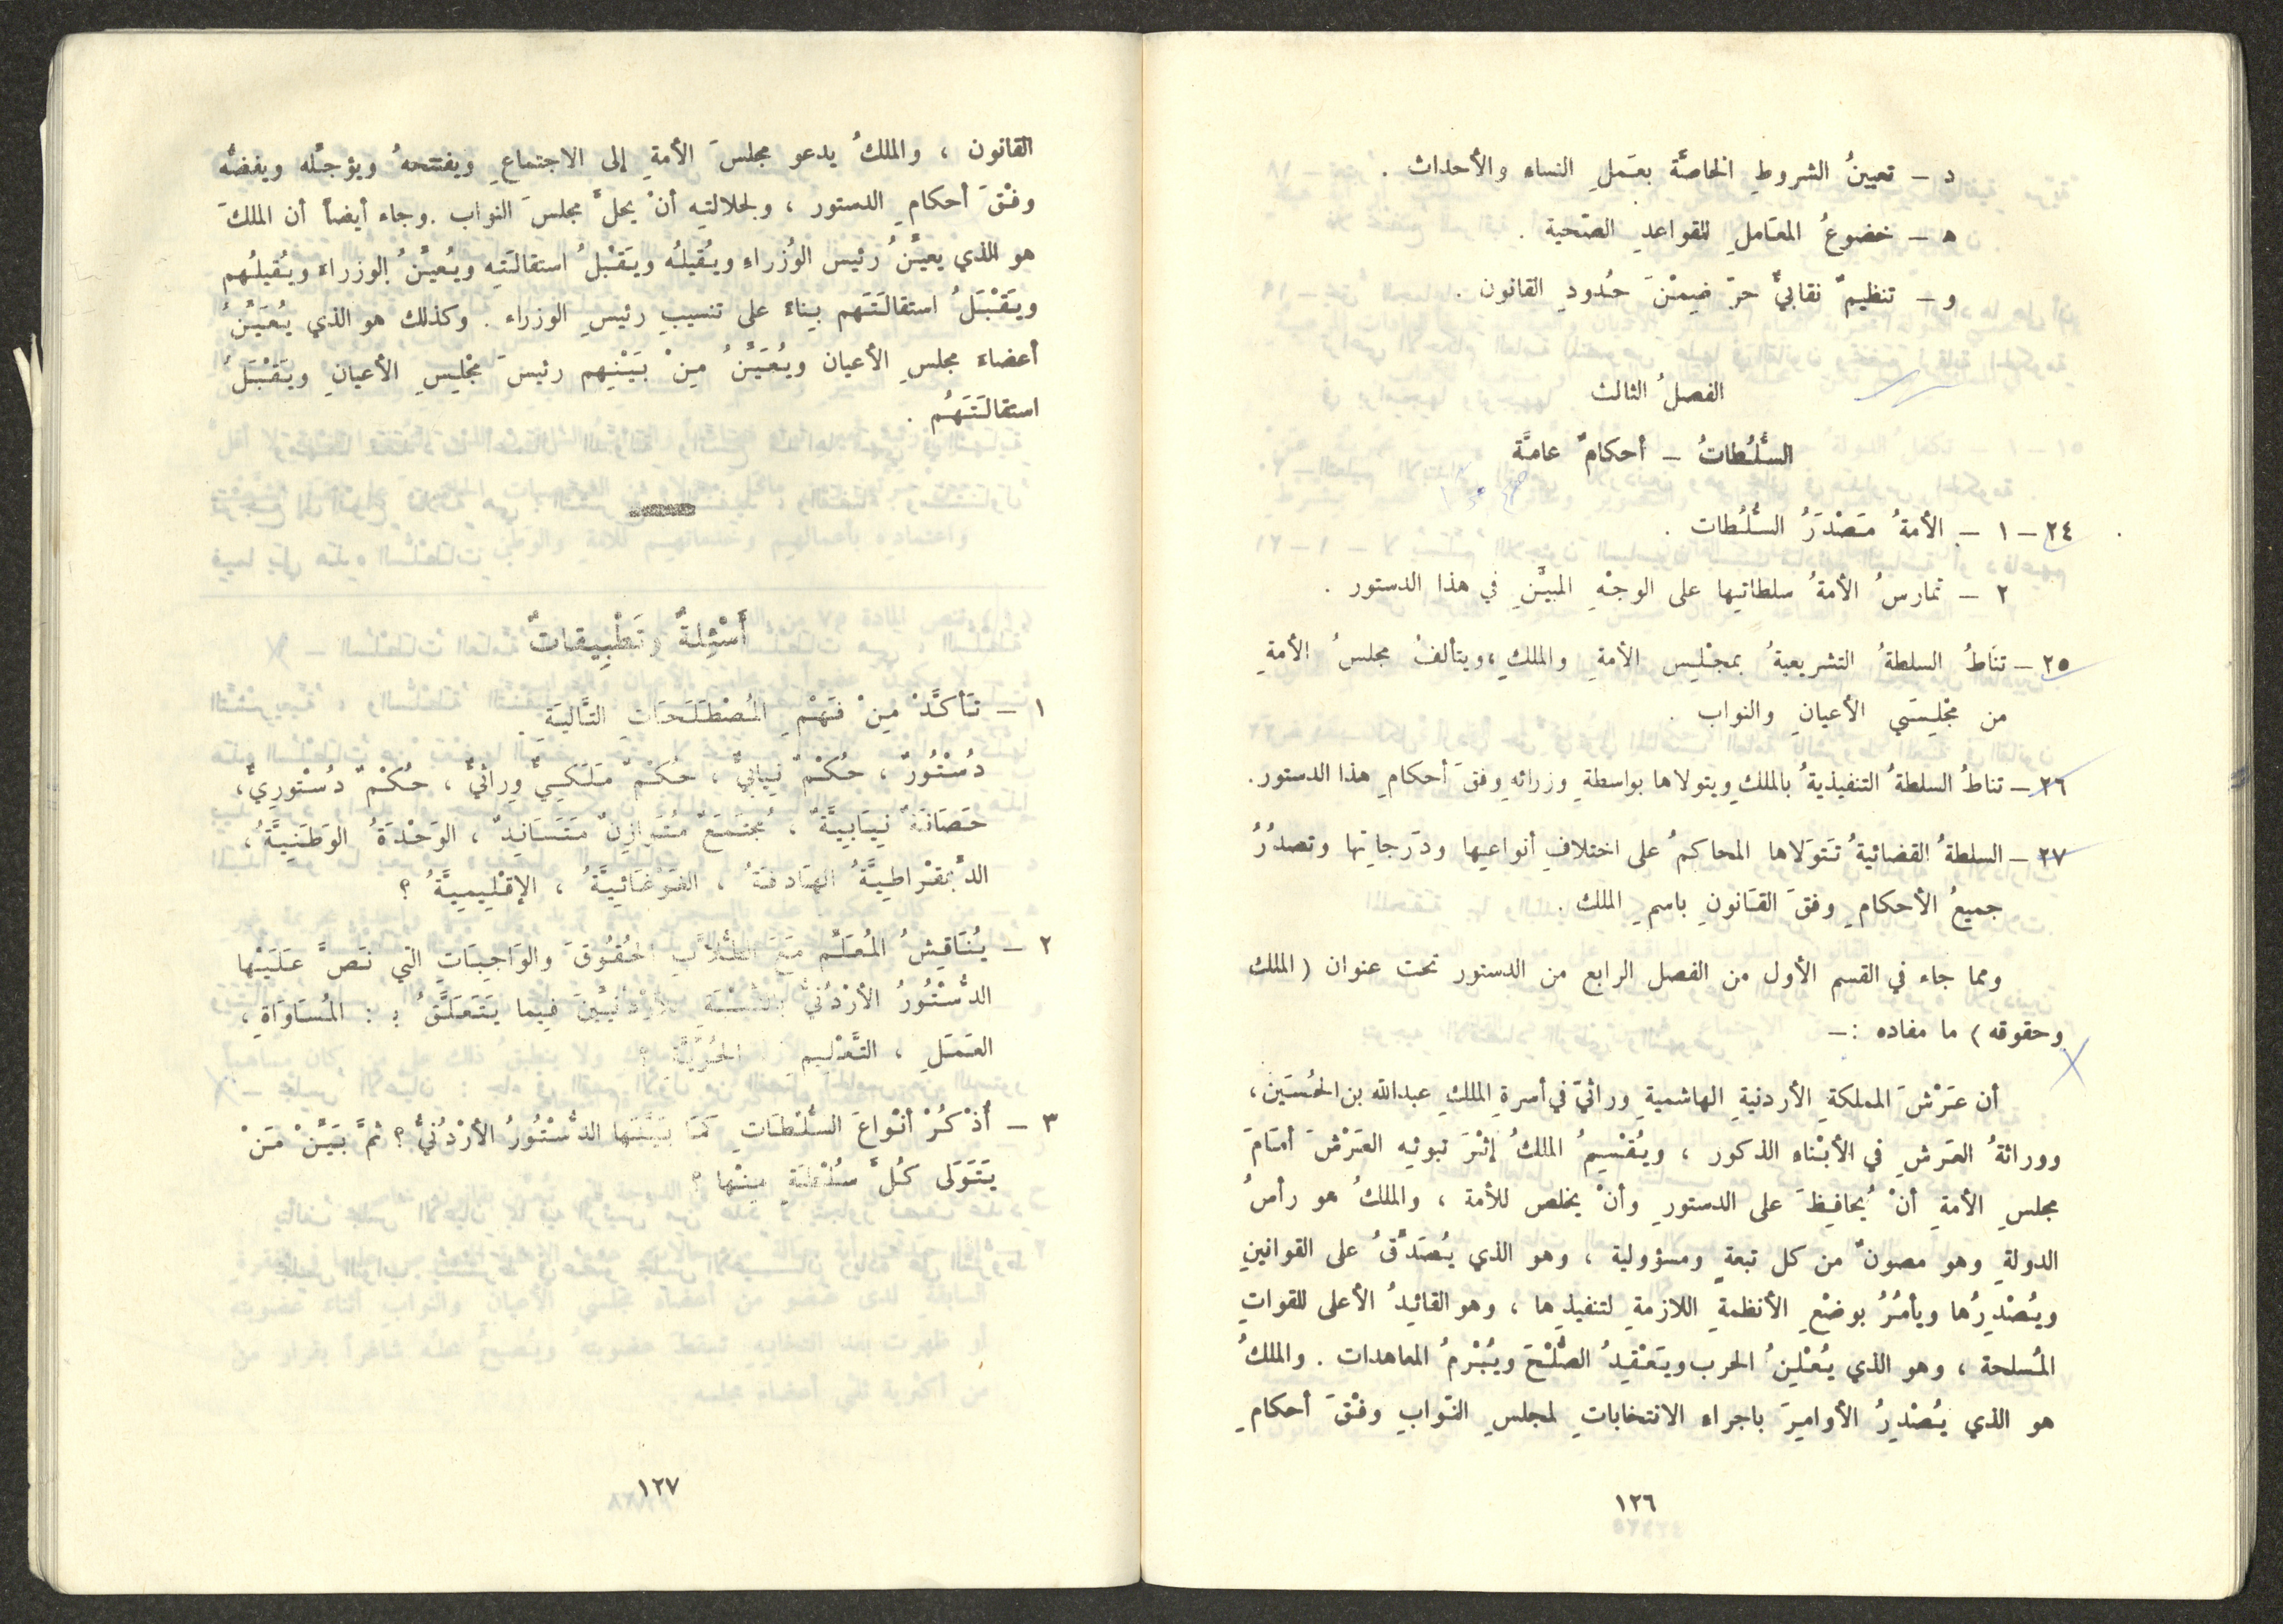 د – تعيينُ الشروطِ الخاصَّة بعمَلِ النساء والأحداث .
ه – خضوعُ المعَاملِ للقواعدِ الصّحية .
و – تنظيمٌ نقابيٌّ حرّ ضِمْنَ حُدودِ القانون .
الفصلُ الثالث
السُّلُطاتُ – أحكامٌ عامَّة
٢٤ – ١ – الأمةُ مَصْدَرُ السُّلُطات .
٢ – تمارسُ الأمةُ سلطاتِها على الوجْهِ المبيَّنِ في هذا الدستور .
٢٥ – تنَاطُ السلطةُ التشريعيةُ بمجْلِس الأمةِ والملكِ، ويتألفُ مجلسُ الأمةِ
من مجْلِسَي الأعيانِ والنواب .
٢٦ – تناطُ السلطةُ التنفيذيةُ بالملكِ ويتولاها بواسطةِ وزرائهِ وفقَ أحكامِ هذا الدستور.
٢٧ – السلطةُ القضائيةُ تتوَلاها المحاكمُ على اختلافِ أنواعِها ودَرجاتِها وتصدُرُ
جميعُ الأحكامِ وفقَ القَانونِ باسمِ الملك .
ومما جاء في القسم الأول من الفصل الرابع من الدستور تحت عنوان ( الملك
وحقوقه ) ما مفاده :–
أن عَرْشَ المملكةِ الأردنيةِ الهاشميةِ وراثيّ في أسرةِ الملكِ عبدالله بن الحُسَين،
ووراثةُ العَرشِ في الأبْناء الذكور ، ويُقْسِمُ الملكُ إثْرَ تبوئِه العَرْشَ أمَامَ
مجلسِ الأمةِ أنْ يُحافِظَ على الدستورِ وأنْ يخلص للأمة ، والملكُ هو رأسُ
الدولةِ وهو مصونٌ من كل تبعةٍ ومسؤولية ، وهو الذي يُصَدِّقُ على القوانينِ
ويُصْدِرُها ويأمُرُ بوضْعِ الأنظمةِ اللازمةِ لتنفيذِها ، وهو القائدُ الأعلى للقواتِ
المُسلحة ، وهو الذي يُعْلِنُ الحرب ويَعْقِدُ الصُّلْحَ ويُبْرمُ المعاهدات . والملكُ
هو الذي يُصْدِرُ الأوامِرَ باجراء الانتخاباتِ لمجلسِ النّوابِ وفْقَ أحكامِ
١٢٦
القانون ، والملكُ يدعو مجلسَ الأمةِ إلى الاجتماعِ ويفتتحهُ ويؤجلُه ويفضُّه
وفْقَ أحكامِ الدستور ، ولجلالتِه أنْ يحلَّ مجلسَ النواب . وجاء أيضاً أن الملكَ
هو الذي يعيِّنُ رئيسَ الوُزراءِ ويُقيلُه ويَقْبلُ استقالَتِه ويُعيِّنُ الوزراءَ ويُقيلُهم
ويَقْبَلُ استقالَتَهم بناءً على تنسيبِ رئيسِ الوزراء . وكذلك هو الذي يُعَيِّنُ
أعضاءَ مجلسِ الأعيان ويُعَيِّنُ مِنْ بَيْنِهم رئيسَ مجْلِسِ الأعيانِ ويَقْبَلُ
استقالَتَهُم .
أَسْئِلةٌ وتَطْبِيقاتٌ
١ – تَأكَّدْ مِنْ فَهْمِ المُصْطَلَحَاتِ التَّاليَةِ
دُسْتُورٌ ، حُكْمٌ نِيابيٌّ ، حُكْمٌ مَلَكِيٌّ وِراثيٌّ ، حُكْمٌ دُسْتوريٌّ،
حَصَانَةٌ نِيَابِيَّةٌ ، مُجتَمَعٌ مُتَوازِنٌ مَتَسَانِدٌ ، الوَحْدَةُ الوَطَنِيَّةُ،
الدِّيمقْراطِيَّةُ الهَادفَةُ ، الغَوْغَائِيَّةُ ، الإقْلِيمِيَّةُ ؟
٢ – يُنَاقِشُ المُعَلِّم مَعَ الطُّلابِّ الحُقُوقَ والوَاجِبَاتِ التي نَصَّ عَلَيْها
الدُّسْتُورُ الأرْدُنيُّ بالنِّسْبَةِ للأرْدُنيِّينَ فيما يَتَعَلَّقُ بِ : المُسَاوَاةِ ،
العَمَلِ ، التَّعْلِيمِ . الحُرِّيَّة ؟
٣ – أُذْكُرْ أنْواعَ السُّلْطَاتِ كَمَا بَيَّنَها الدُّسْتُورُ الأرْدُنيُّ ؟ ثمَّ بَيِّنْ مَنْ
يَتَوَلى كُلَّ سُلْطَةٍ مِنْها ؟
١٢٧